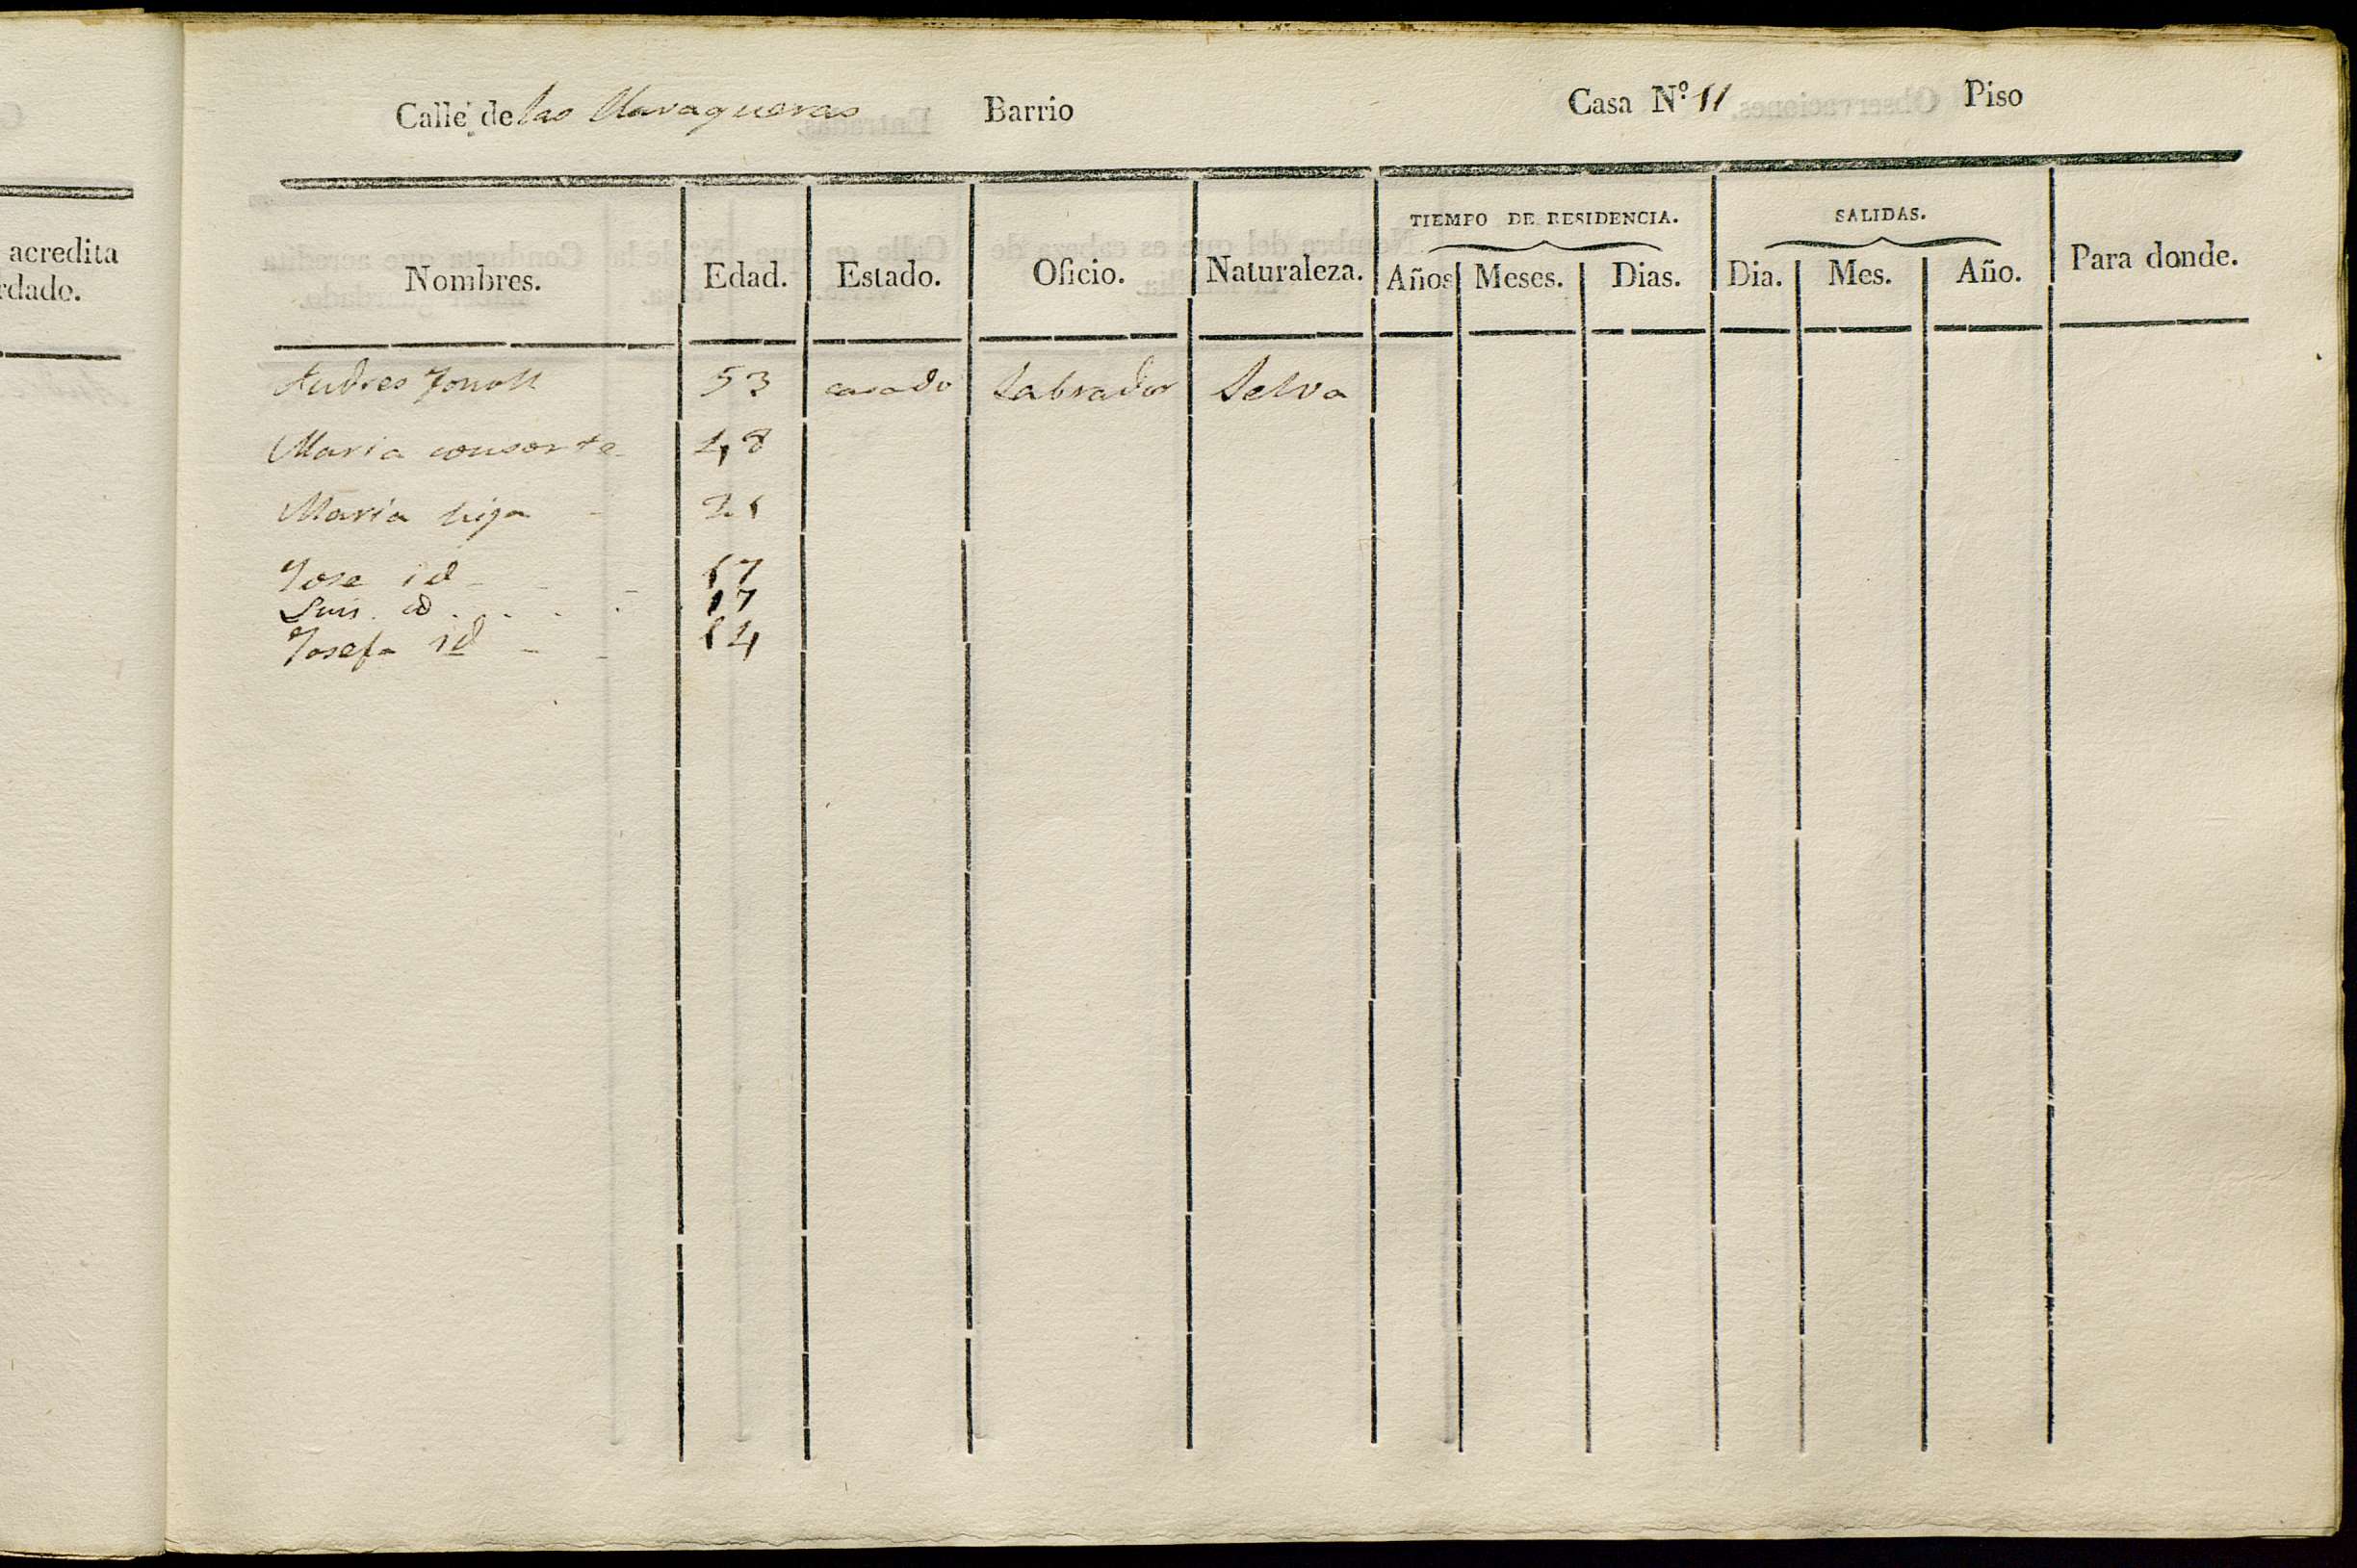 acredita
rdado.
Calle de las Barrio Casa N.º 11 Piso
TIEMPO DE RESIDENCIA. SALIDAS.
Nombres. Edad. Estado. Oficio. Naturaleza. Años Meses. Dias. Dia. Mes. Año. Para donde.
Andres 53 casado Labrador Selva
Maria consorte 48
Maria hija - 21
Jose id - - - 17
Luis. id . . . . 17
Josefa id - - 14